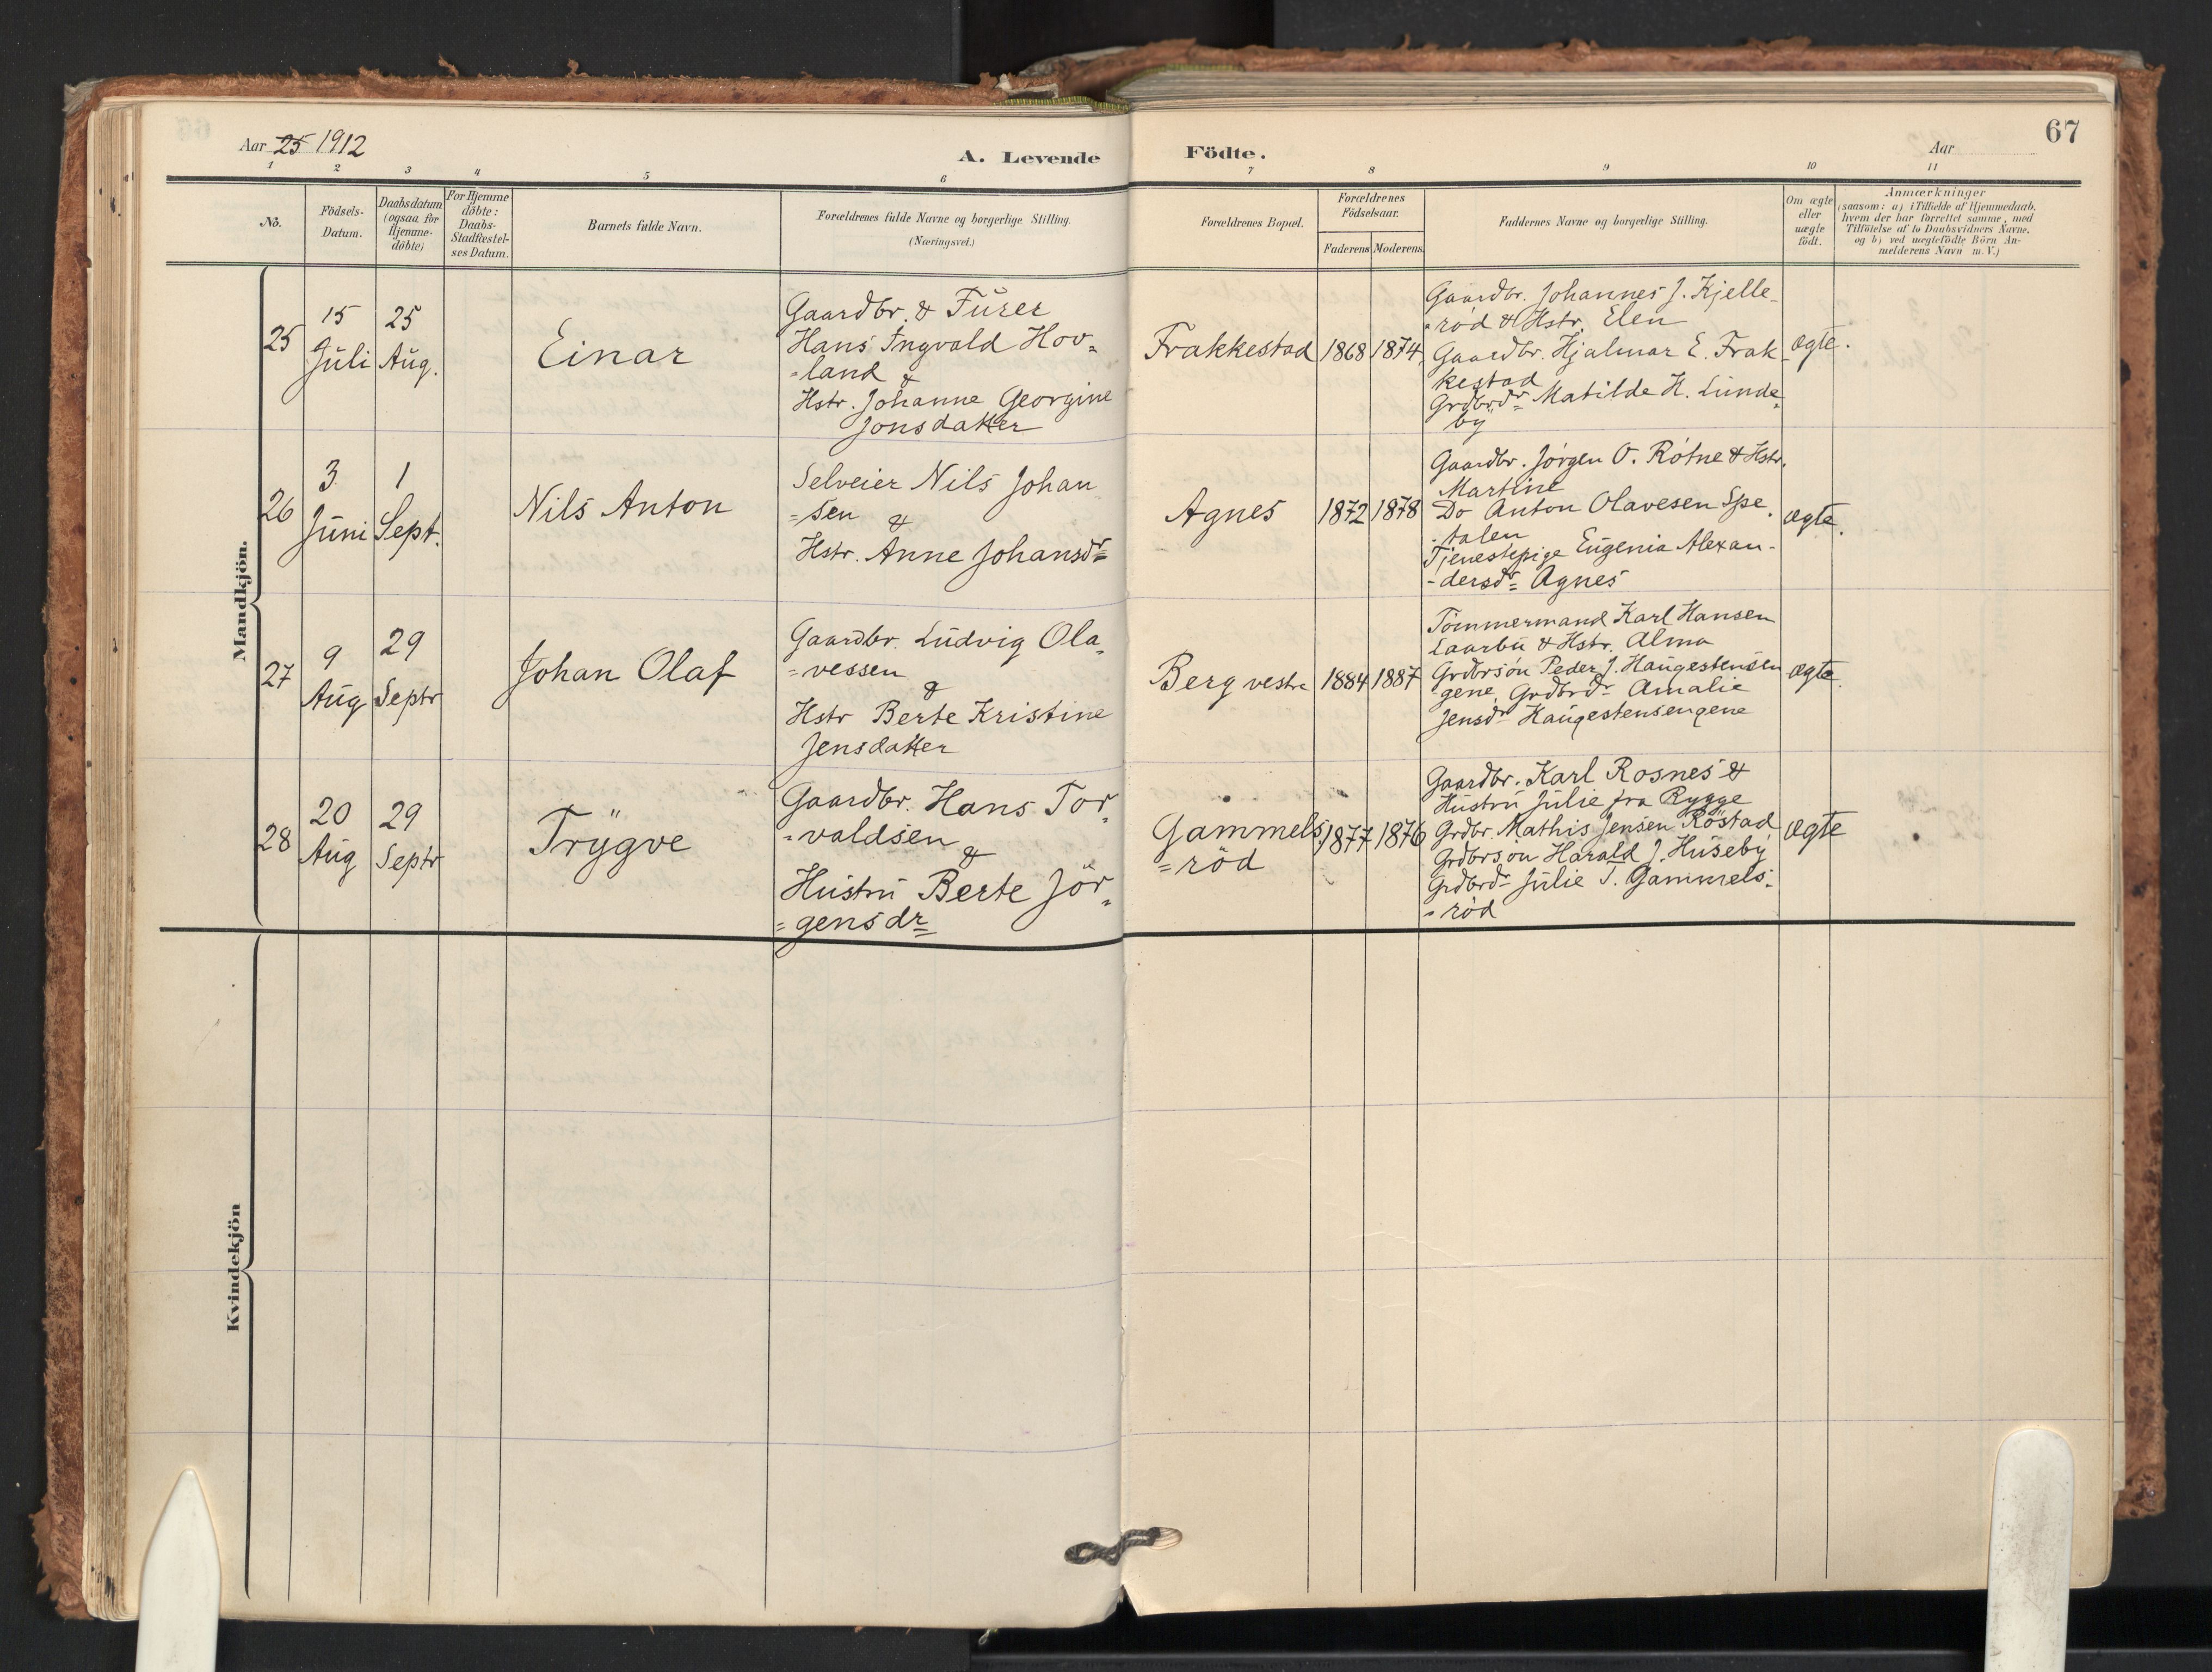 67
Aar 25 1912
A. Levende Födte.
Aar
1 2 3 4 5 6 7 8 9 10 11
No.
Födsels-
Datum.
Daabsdatum
(ogsaa for
Hjemme-
döbte)
For Hjemme
döbte:
Daabs-
Stadfæstel-
ses Datum.
Barnets fulde Navn.
Forældrenes fulde Navne og borgerlige Stilling.
(Næringsvei.)
Forældrenes Bopæl.
Forældrenes
Födselsaar.
Faderens Moderens
Faddernes Navne og borgerlige Stilling.
Om ægte
eller
uægte
födt.
Anmærkninger
(saasom: a) i Tilfælde af Hjemmedaab,
hvem der har forrettet samme, med
Tilföielse af to Daabsvidners Navne,
og b) ved uægtefödte Börn An-
melderens Navn m.V.)
Mandkjön.
25
15
Juli
25
Aug.
Einar
Gaardbr. & Furer
Hans Ingvald Hov=
=land &
Hstr. Johanne Georgine
Jonsdatter
Frakkestad
1868
1874
Gaardbr. Johannes J. Kjelle-
-röd & Hstr. Elen
Gaardbr. Hjalmar E. Frak-
kestad
Grdbrdr Matilde H. Lunde=
by
ægte.
26
3
Juni
1
Sept.
Nils Anton
Selveier Nils Johan
=sen &
Hstr. Anne Johansdr
Agnes
1872
1878
Gaardbr. Jörgen O. Rötne & Hstr.
Martine
Do Anton Olavesen Spe-
-talen
Tjenestepige Eugenia Alexan-
-dersdr Agnes
ægte.
27
9
Aug
29
Septr
Johan Olaf
Gaardbr. Ludvig Ola=
=vessen
&
Hstr Berte Kristine
Jensdatter
Berg vestre
1884
1887
Tömmermand Karl Hansen
Laarbu & Hstr. Alma
Grdbrsön Peder J. Haugestensen
gene, Grdbrdr Amalie
Jensdr Haugestensengene
ægte.
28
20
Aug
29
Septr
Trygve
Gaardbr. Hans Tor=
=valdsen
&
Hustru Berte Jör=
=gensdr
Gammels=
=röd
1877
1876
Gaardbr. Karl Rosnes &
Hustru Julie fra Rygge
Grdbr. Mathis Jensen Röstad
Grdbrsön Harald J. Huseby
Grdbrdr Julie T. Gammels-
-röd
ægte
Kvindekjön